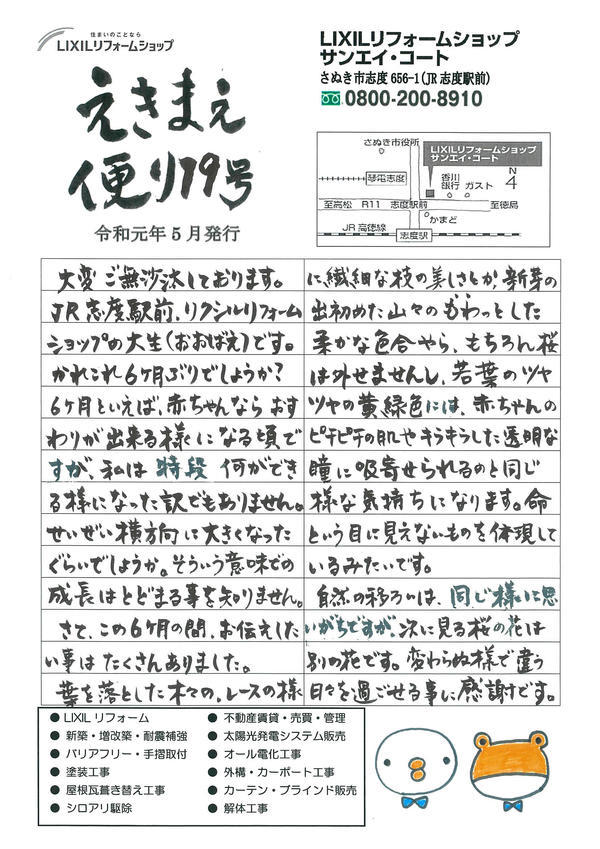 住まいのことなら
LIXILリフォームショップ
LIXILリフォームショップ
サンエイ・コート
さぬき市志度656-1(JR志度駅前)
0800-200-8910
えきまえ
便り79号
令和元年5月発行
さぬき市役所
LIXILリフォームショップ
サンエイ・コート
琴電志度
香川
銀行
ガスト
N
4
至高松
R11
志度駅前
至徳島
かまど
JR高徳線
志度駅
大変ご無沙汰しております。
JR志度駅前、リクシルリフォーム
ショップの大生(おおばえ)です。
かれこれ6ヶ月ぶりでしょうか?
6ヶ月といえば、赤ちゃんなら おす
わりが出来る様になる頃で
すが、私は 特段 何ができ
る様になった訳でもありません。
せいぜい横方向に大きくなった
ぐらいでしょうか。そういう意味での
成長はとどまる事を知りません。
さて、この6ヶ月の間、お伝えした
い事は たくさんありました。
葉を落とした木々の、レースの様
に繊細な枝の美しさとか、新芽の
出初めた山々の もわっとした
柔かな色合やら、もちろん桜
は外せませんし、若葉のツヤ
ツヤの黄緑色には、赤ちゃんの
ピチピチの肌やキラキラした透明な
瞳に吸寄せられるのと同じ
様な気持ちになります。命
という目に見えないものを体現して
いるみたいです。
自然の移ろいは、同じ様に思
いがちですが、次に見る桜の花は
別の花です。変わらぬ様で違う
日々を過ごせる事に感謝です。
● LIXIL リフォーム
● 新築・増改築・耐震補強
● バリアフリー・手摺取付
● 塗装工事
● 屋根瓦葺き替え工事
● シロアリ駆除
● 不動産賃貸・売買・管理
● 太陽光発電システム販売
● オール電化工事
● 外構・カーポート工事
● カーテン・ブラインド販売
● 解体工事